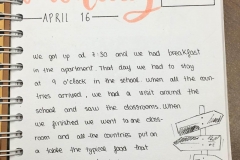 APRIL 16
we got up at 7:30 and we had breakfast
in the apartment. That day we had to stay
at 9 o'clock in the school. When all the coun-
tries arrived, we had a visit around the
school and saw the classrooms. When
we finished we went to the class-
room and all the countries put on
a table the typical food that